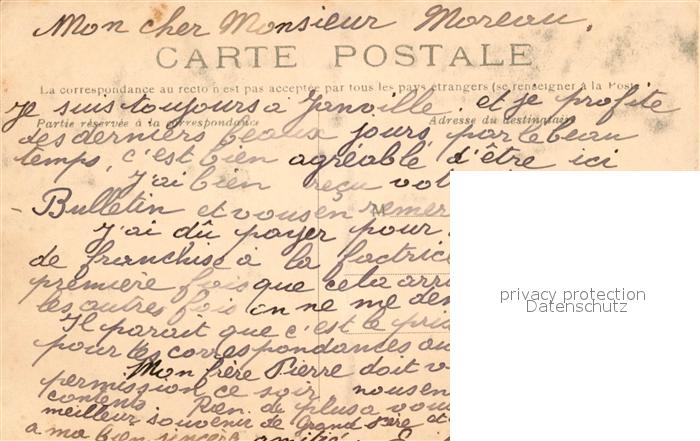 Mon cher Monsieur Moreau,
CARTE POSTALE
La correspondance au recto n'est pas acceptée par tous les pays étrangers (se renseigner à la Poste
Je suis toujours à Janville et je profite
Partie réservée à la correspondance
Adresse du destinataire
des derniers beaux jours, par le beau
temps, c'est bien agréable d'être ici
J'ai bien reçu vot
- Bulletin et vous en remer
J'ai dû payer pour
de franchise à la factrice
première fois que cela arri
les autres fois on ne me de
Il parait que c'est le pri
pour les correspondances ou
Mon frère Pierre doit v
permission ce soir nous en
contents Rien de plus a vou
meilleur souvenir de Grand'mère et
a ma bien sincère amitié. E.
privacy protection
Datenschutz